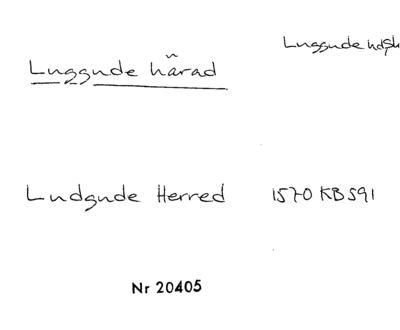 Luggude hdsk
Luggude härad
Ludgude Herred 1570 KB S91
Nr 20405